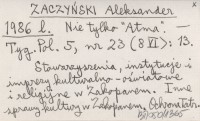 ZACZYŃSKI Aleksander
1986 l. Nie tylko "Atma". —
Tyg. Pol. 5, nr 23 (8 VI): 13.
Stowarzyszenia, instytucje i
imprezy kulturalno-oświatowe
i religijne w Zakopanem. Inne
sprawy kultury w Zakopanem. Ochrona